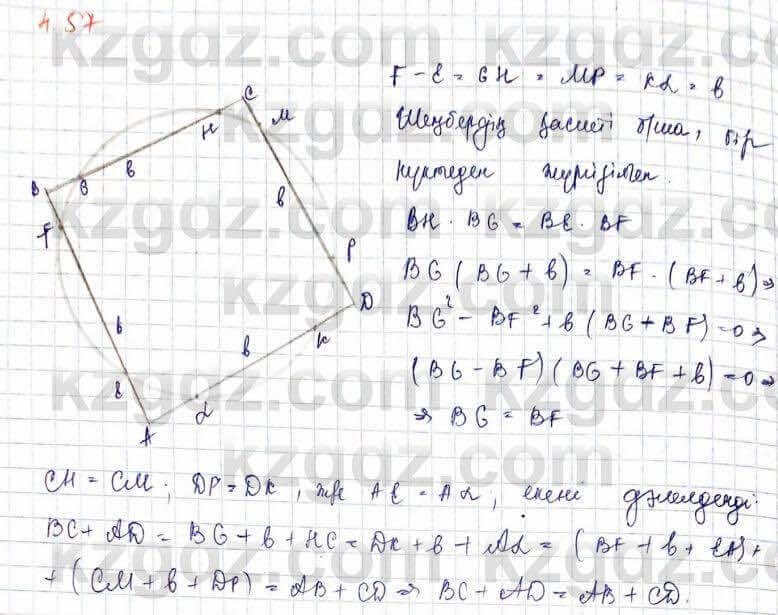 4.57
F-E = GH = MP = KL = b
Шеңбердің қасиеті б/ша, бір
нүктеден жүргізілген.
BH · BG = BE · BF
BG (BG + b) = BF · (BF + b) ⇒
BG² - BF² + b (BG + BF) = 0 ⇒
(BG - BF) (BG + BF + b) = 0 ⇒
⇒ BG = BF
C
H
M
B
G
b
b
F
P
D
b
b
K
E
L
A
CH = CM; DP = DK, және AE = AL, екені дәлелденді.
BC + AD = BG + b + HC = DK + b + AL = (BF + b + EA) +
+ (CM + b + DP) = AB + CD ⇒ BC + AD = AB + CD.
kzgdz.com